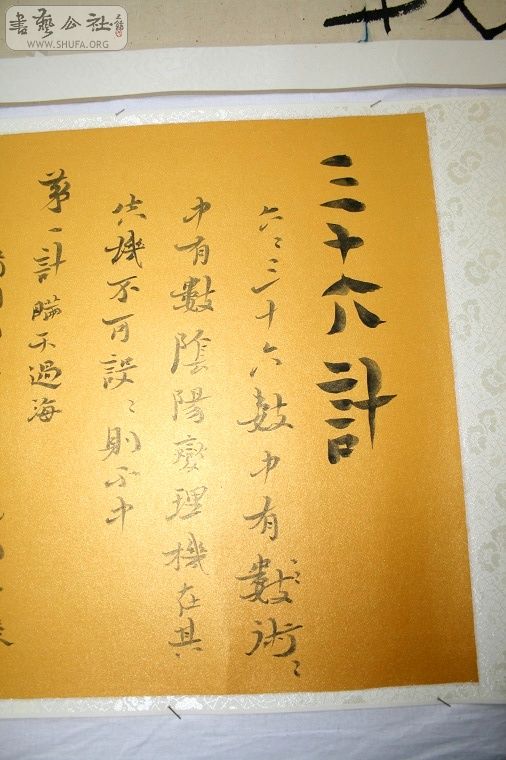 三十六計
六〻三十六數中有數術〻
中有數陰陽燮理機在其〻
機不可設〻則不中
第一計瞞天過海
書藝公社
WWW.SHUFA.ORG